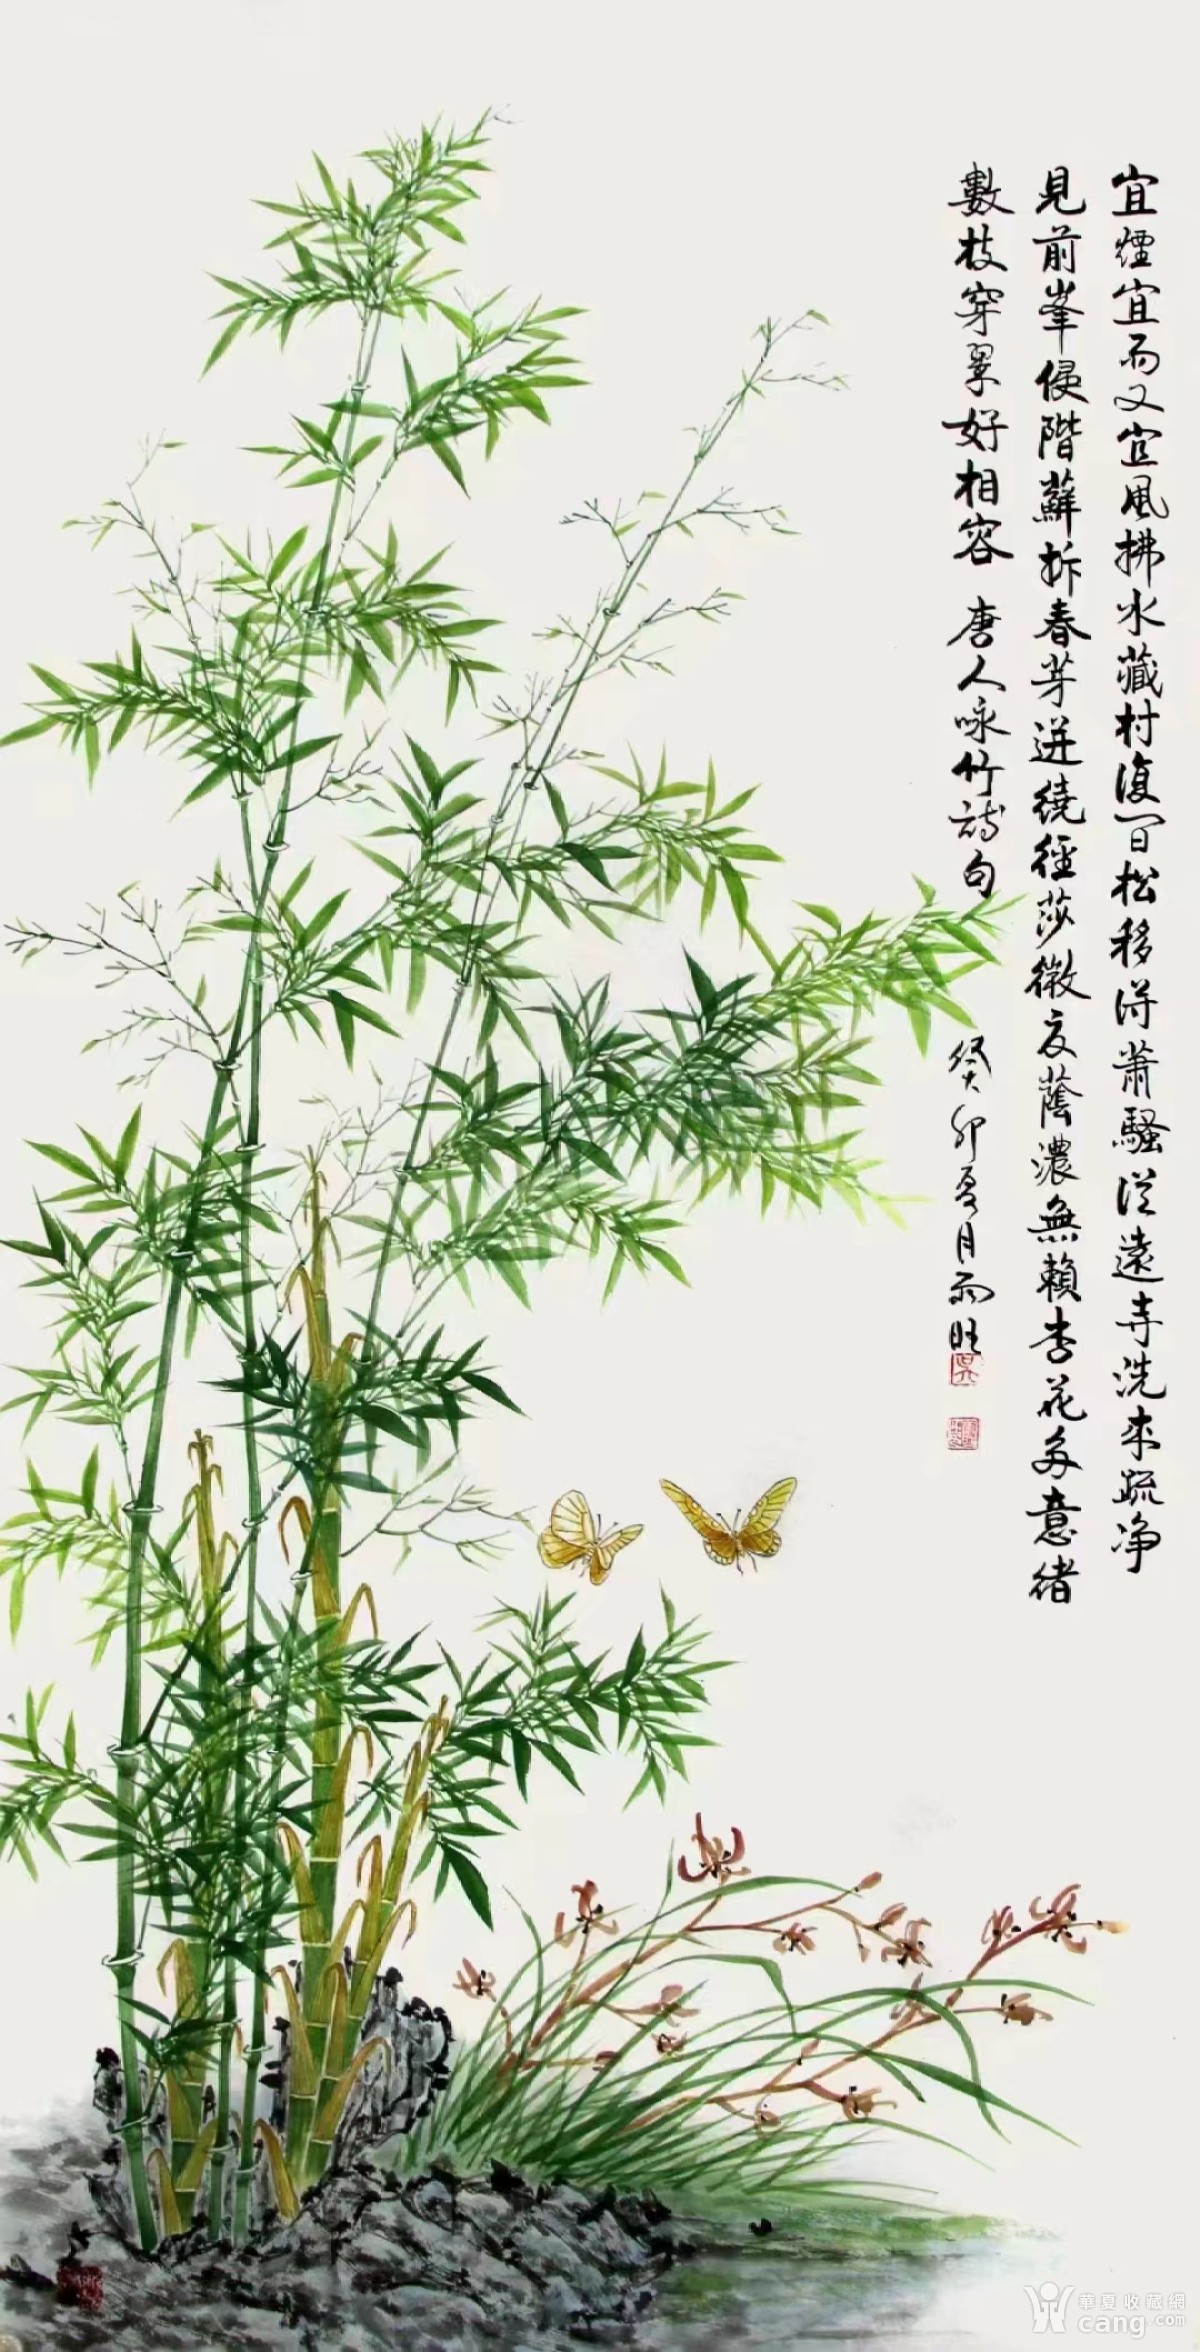 宜煙宜雨又宜風拂水藏村復間松移得蕭騷從遠寺洗來疏净
見前峯侵階蘚拆春芽迸繞徑莎微夏蔭濃無賴杏花多意緒
數枝穿翠好相容 唐人咏竹詩句 癸卯夏月雨旺
華夏收藏網
cang.com